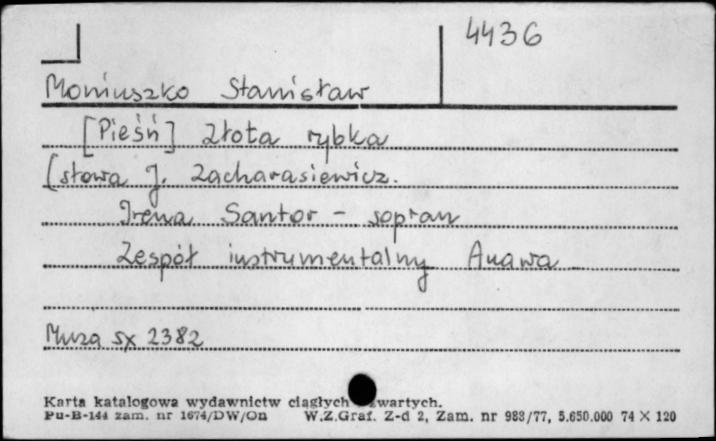 4436
Moniuszko Stanisław
[Pieśń] Złota rybka
(słowa J. Zacharasiewicz.
Irena Santor - sopran
Zespół instrumentalny Anawa
Muza SX 2382
Karta katalogowa wydawnictw ciągłych zwartych.
Pu-B-144 zam. nr 1674/DW/On W.Z.Graf. Z-d 2, Zam. nr 983/77, 5.650.000 74 × 120